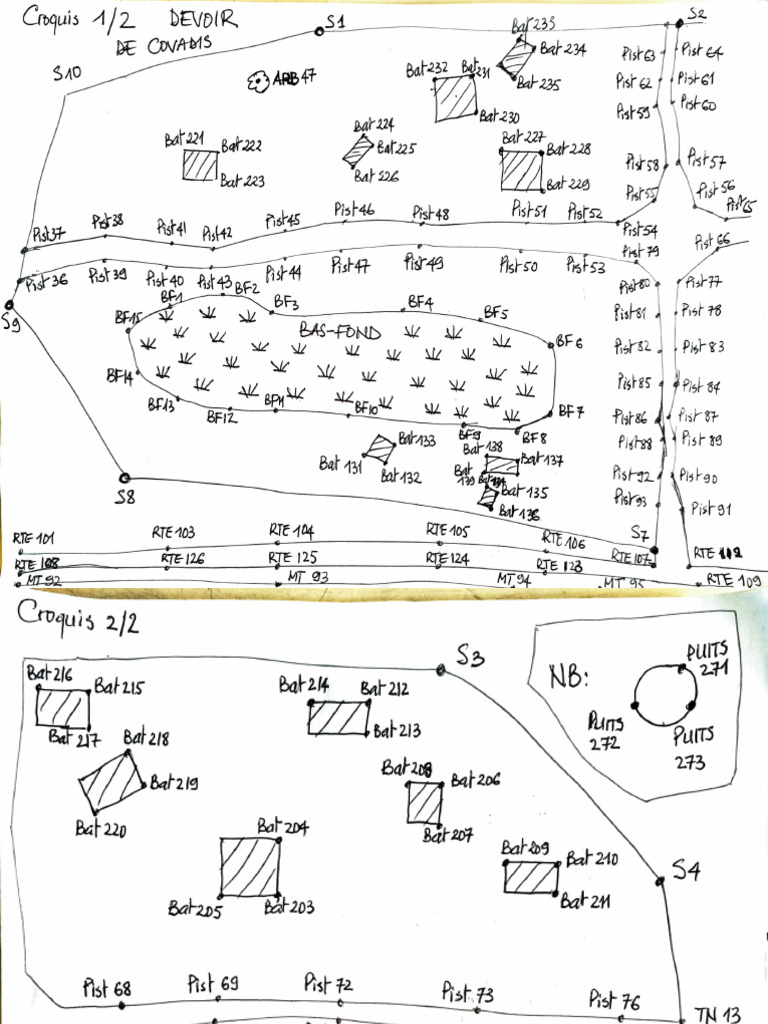 Croquis 1/2 DEVOIR
DE COVADIS
S1
S2
S10
ARB 47
Bat 233
Bat 234
Bat 235
Bat 232
Bat 231
Bat 230
Pist 63
Pist 64
Pist 62
Pist 61
Pist 59
Pist 60
Bat 221
Bat 222
Bat 223
Bat 224
Bat 225
Bat 226
Bat 227
Bat 228
Bat 229
Pist 58
Pist 57
Pist 55
Pist 56
Pist 65
Pist 37
Pist 38
Pist 41
Pist 42
Pist 45
Pist 46
Pist 48
Pist 51
Pist 52
Pist 54
Pist 66
Pist 36
Pist 39
Pist 40
Pist 43
Pist 44
Pist 47
Pist 49
Pist 50
Pist 53
Pist 79
Pist 80
Pist 77
S9
BF1
BF2
BF3
BF4
BF5
BF6
BF15
BAS-FOND
Pist 81
Pist 78
Pist 82
Pist 83
BF14
BF13
BF12
BF11
BF10
BF9
BF8
BF7
Pist 85
Pist 84
Pist 86
Pist 87
Pist 88
Pist 89
Bat 131
Bat 133
Bat 132
Bat 138
Bat 137
Bat 139
Bat 134
Bat 135
Bat 136
Pist 92
Pist 90
Pist 93
Pist 91
S8
S7
RTE 101
RTE 103
RTE 104
RTE 105
RTE 106
RTE 107
RTE 108
RTE 126
RTE 125
RTE 124
RTE 123
MT 92
MT 93
MT 94
MT 95
RTE 109
Croquis 2/2
S3
NB:
PUITS
271
PUITS
272
PUITS
273
Bat 216
Bat 215
Bat 217
Bat 218
Bat 219
Bat 220
Bat 214
Bat 212
Bat 213
Bat 208
Bat 206
Bat 207
Bat 204
Bat 205
Bat 203
Bat 209
Bat 210
Bat 211
S4
Pist 68
Pist 69
Pist 72
Pist 73
Pist 76
TN 13